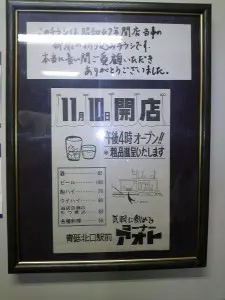 このチラシは昭和47年開店当時の
新聞の折り込みチラシです。
本当に長い間ご愛顧いただき
ありがとうございました。
11月10日開店
午後4時オープン!!
※粗品進呈いたします
酒
ビール
酎ハイ
ウイハイ
もつ煮込
各種料理
気軽に飲める
コーナー
アオト
青砥北口駅前